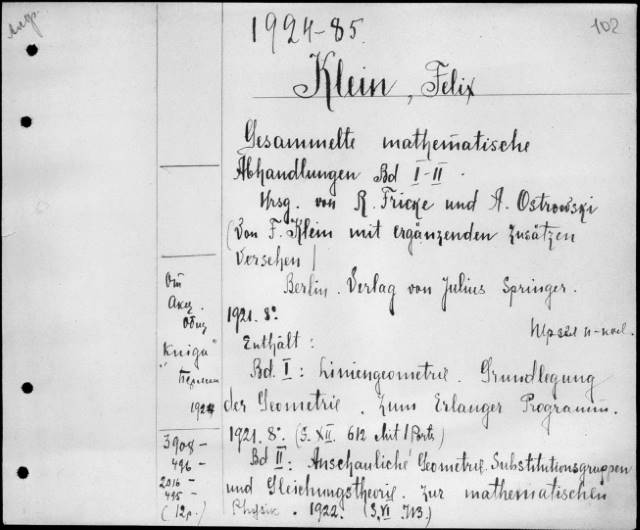 1924-85.
102
Klein, Felix
Gesammelte mathematische
Abhandlungen Bd I-II.
Hrsg. von R. Fricke und A. Ostrowski
(Von F. Klein mit ergänzenden Zusätzen
versehen)
Berlin. Verlag von Julius Springer.
1921. 8°.
Enthält:
Bd. I: Liniengeometrie. Grundlegung
der Geometrie. Zum Erlanger Programm.
1921. 8°. (S. XII. 612 Mit 1 Portr.)
Bd II: Anschauliche Geometrie. Substitutionsgruppen
und Gleichungstheorie. Zur mathematischen
Physik. 1922. (S. VI 713.)
От
Акц.
Общ
"Книга"
Берлин
192
3908-
496-
2016-
495-
(12р.)